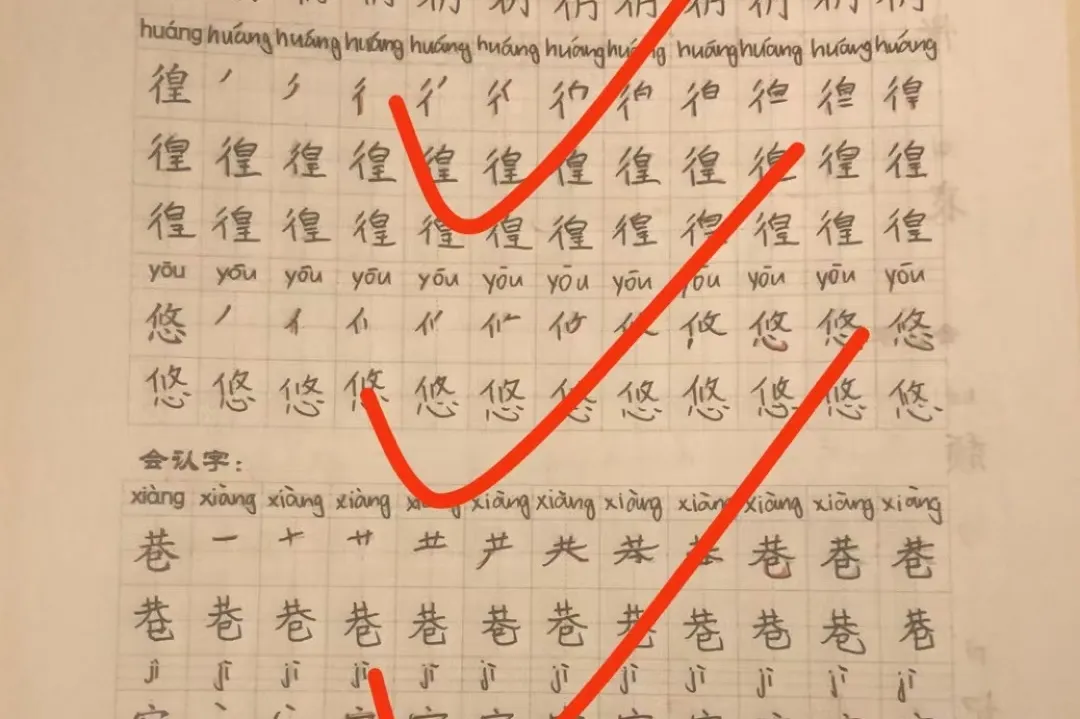 huáng huáng huáng huáng huáng huáng huáng huáng huáng huáng huáng huáng
徨 徨
徨 徨 徨 徨 徨 徨 徨 徨 徨 徨 徨 徨
徨 徨 徨 徨 徨 徨 徨 徨 徨 徨 徨 徨
yōu yōu yōu yōu yōu yōu yōu yōu yōu yōu yōu yōu
悠 丿 亻 攸 悠 悠 悠
悠 悠 悠 悠 悠 悠 悠 悠 悠 悠 悠 悠
会认字:
xiàng xiàng xiàng xiàng xiāng xiàng xiàng xiāng xiāng xiāng xiāng
巷 一 十 艹 龷 共 巷 巷 巷
巷 巷 巷 巷 巷 巷 巷 巷 巷 巷 巷 巷
jì jì jì jì jì jì jì jì jì jì jì jì